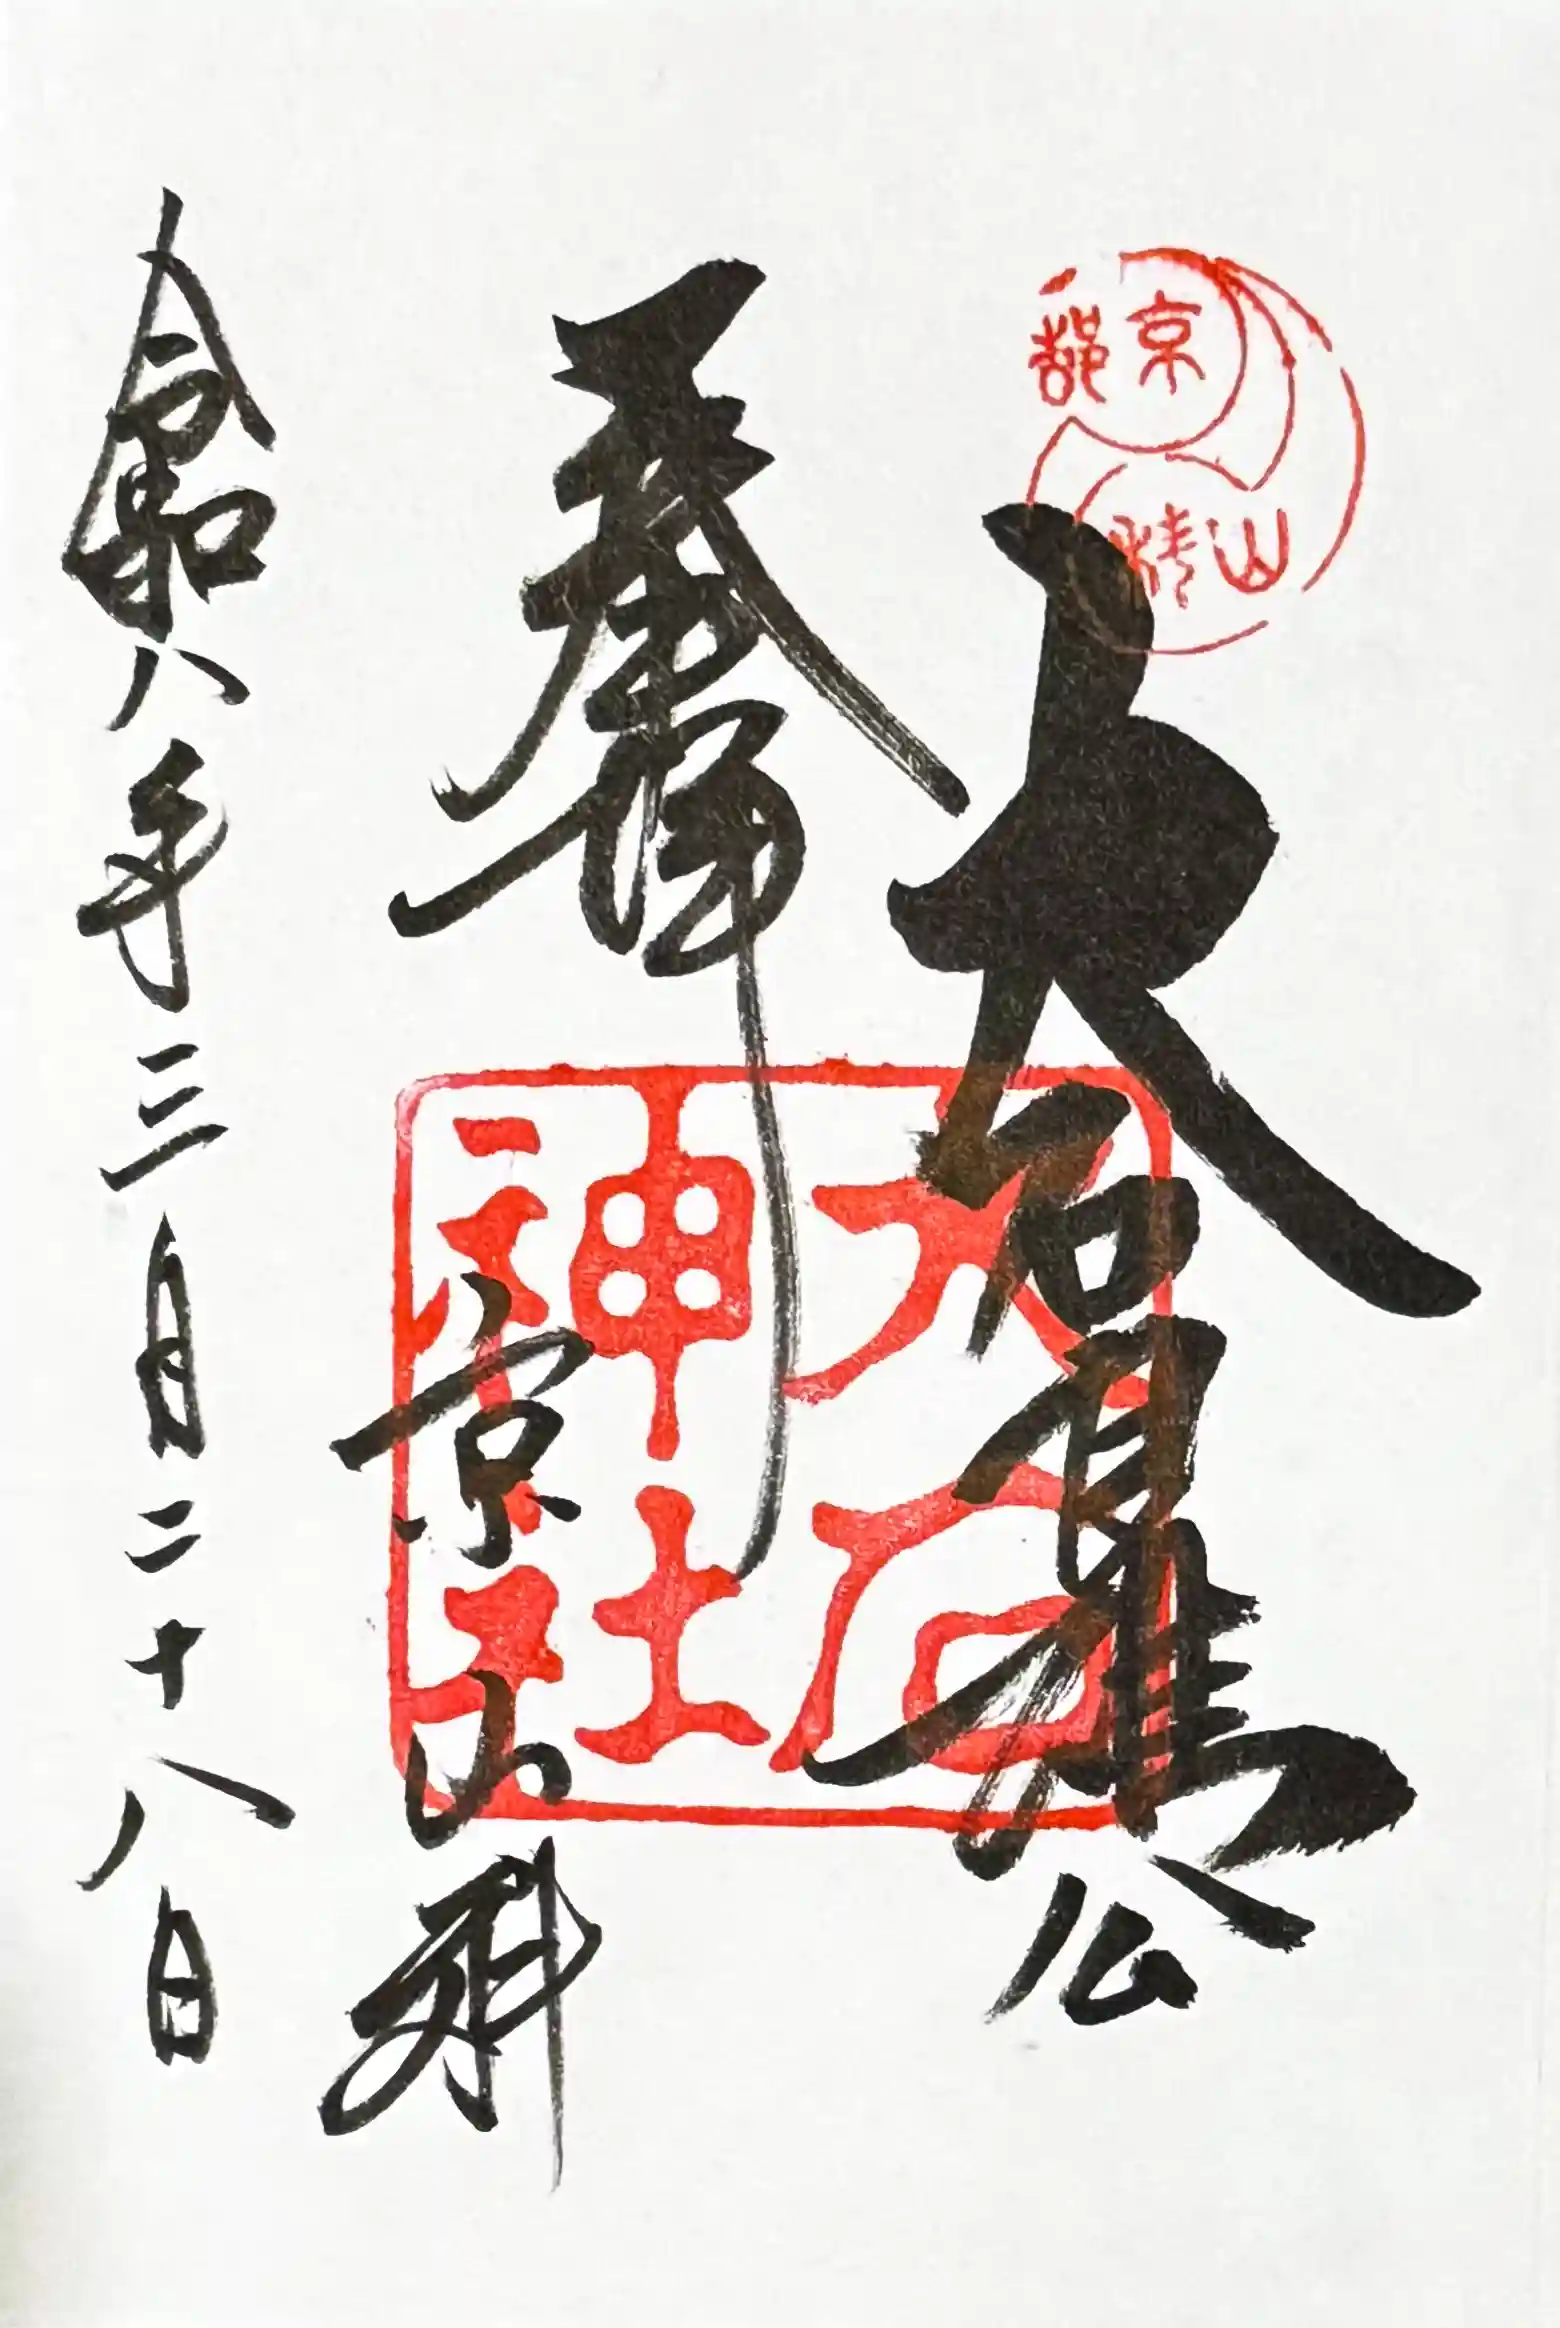 京都
山科
大石良雄公
奉拝
大石神社
京山科
令和八年三月二十八日